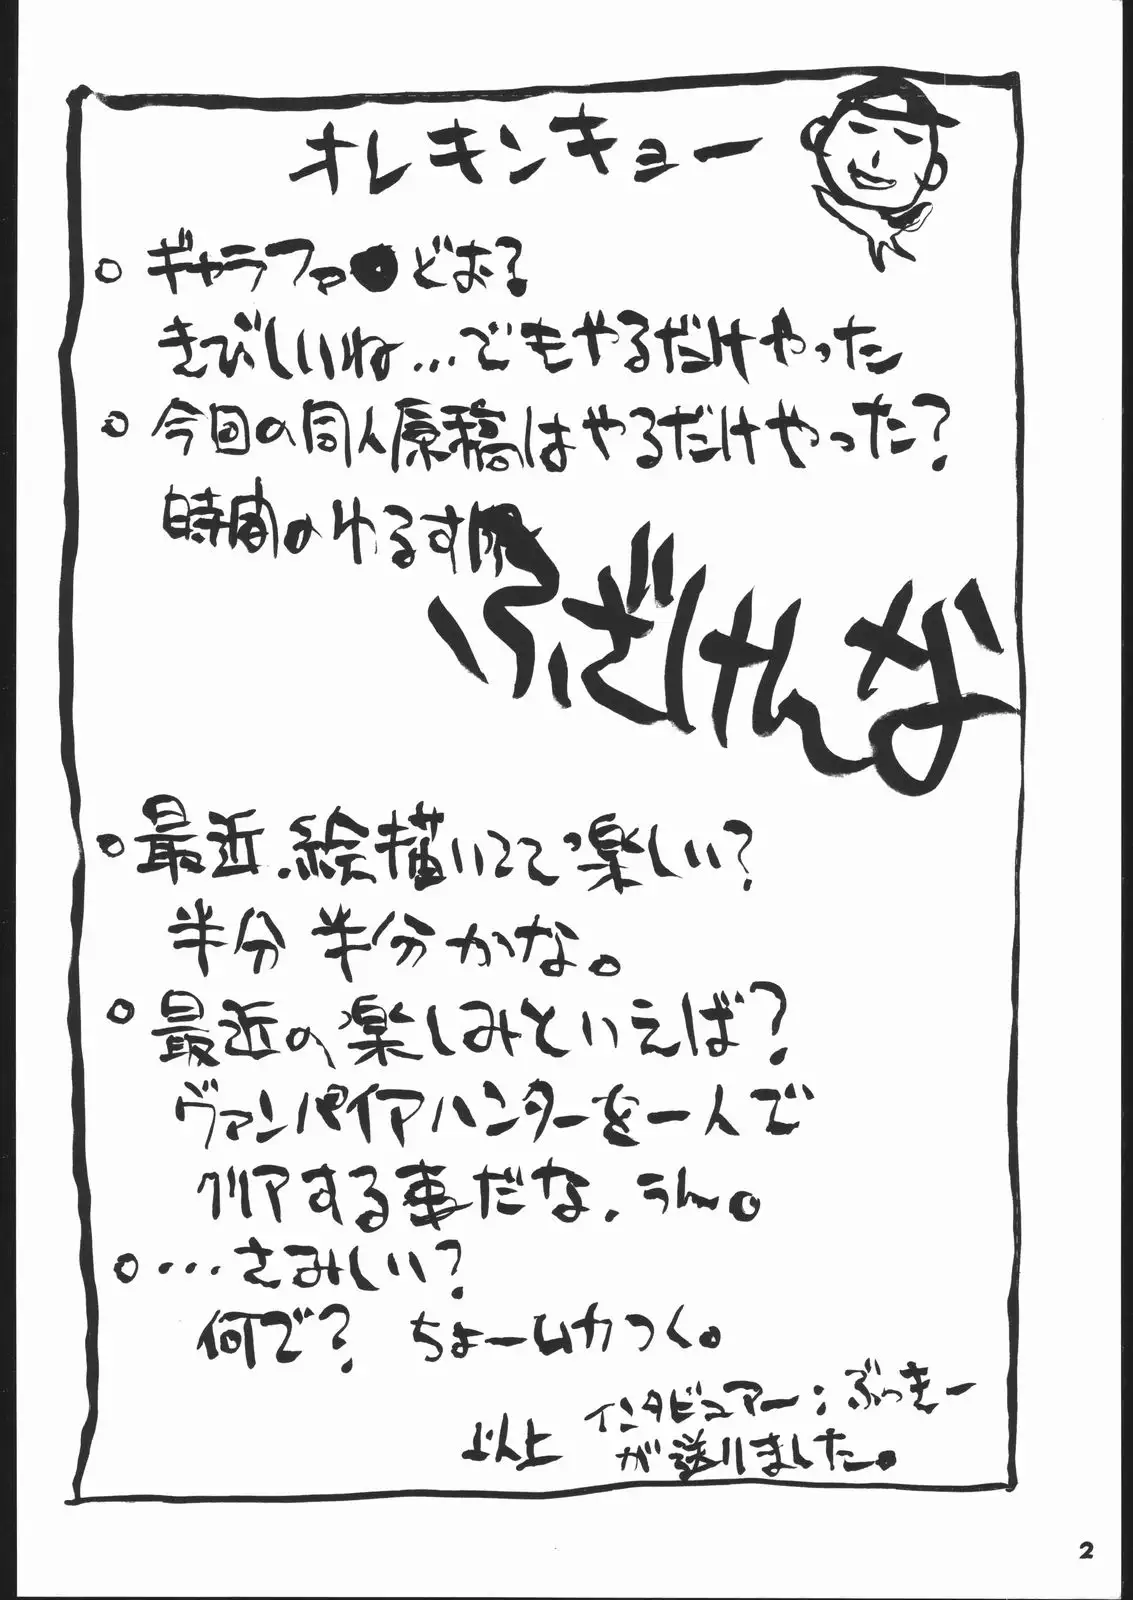 オレキンキョー
○ギャラファ●どお?
きびしいね…でもやるだけやった
○今回の同人原稿はやるだけやった?
時間のゆるす限
ふざけんな
○最近.絵描いてて楽しい?
半分半分かな。
○最近の楽しみといえば?
ヴァンパイアハンターを一人で
クリアする事だな.うん。
○…さみしい?
何で? ちょームカつく。
インタビュアー:ぶっきー
以上 が送りました。
2